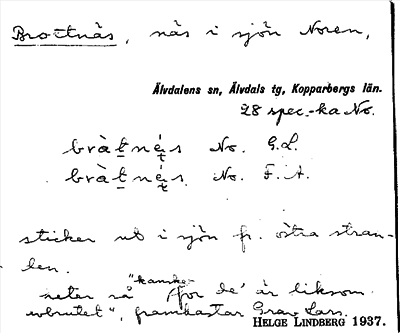 Brottnäs, näs i sjön Noren,
Älvdalens sn, Älvdals tg, Kopparbergs län.
28 spec.-ka No.
bràtnę́s No. G.L.
bràtnę́s No. F.A.
sticker ut i sjön fr. östra stran-
den.
"kanske
heter så för de' är liksom
utbrutet", framkastar Grav Lars.
HELGE LINDBERG 1937.